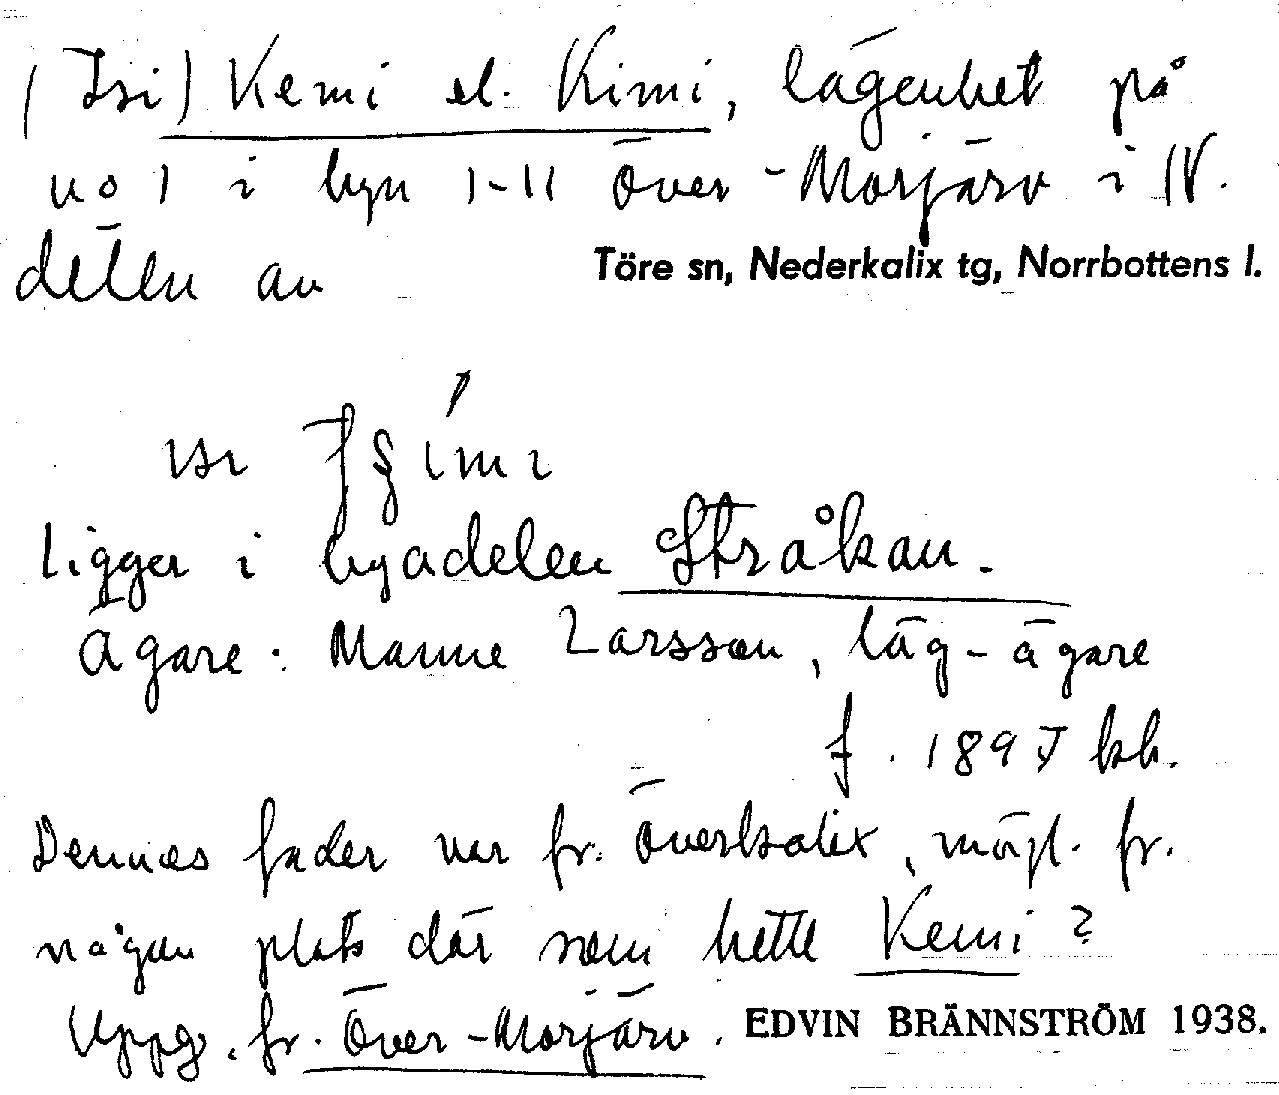 (Isi) Kemi el. Kimi, lägenhet på
no 1 i byn 1-11 Över-Morjärv i N.
delen av Töre sn, Nederkalix tg, Norrbottens l.
ligger i byadelen Stråkan.
Ägare: Manne Larsson, läg-ägare
f. 1897 kb.
Dennes fader var fr. Överkalix, möjl. fr.
någon plats där som hette Kemi?
Uppg. fr. Över-Morjärv. EDVIN BRÄNNSTRÖM 1938.